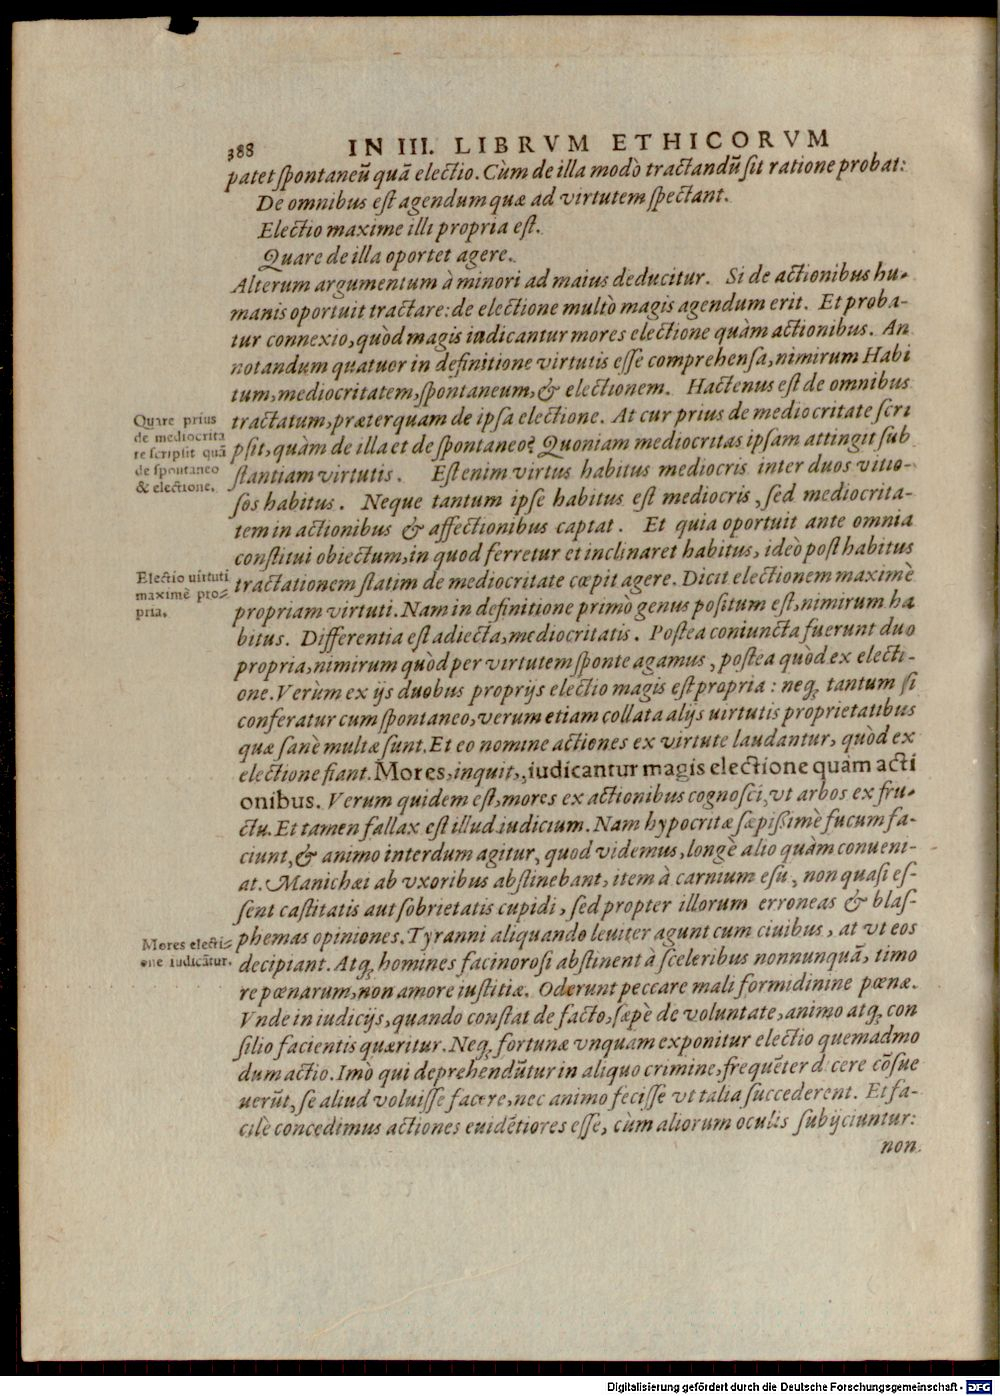 388 IN III. LIBRVM ETHICORVM
patet spontaneū quā electio. Cùm de illa modò tractandū sit ratione probat:
De omnibus est agendum quæ ad virtutem spectant.
Electio maxime illi propria est.
Quare de illa oportet agere.
Alterum argumentum à minori ad maius deducitur. Si de actionibus hu-
manis oportuit tractare: de electione multò magis agendum erit. Et proba-
tur connexio, quòd magis iudicantur mores electione quàm actionibus. An
notandum quatuor in definitione virtutis esse comprehensa, nimirum Habi
tum, mediocritatem, spontaneum, & electionem. Hactenus est de omnibus
tractatum, præterquam de ipsa electione. At cur prius de mediocritate scri
psit, quàm de illa et de spontaneo? Quoniam mediocritas ipsam attingit sub
stantiam virtutis. Est enim virtus habitus mediocris inter duos vitio-
sos habitus. Neque tantum ipse habitus est mediocris, sed mediocrita-
tem in actionibus & affectionibus captat. Et quia oportuit ante omnia
constitui obiectum, in quod ferretur et inclinaret habitus, ideò post habitus
tractationem statim de mediocritate cœpit agere. Dicit electionem maximè
propriam virtuti. Nam in definitione primò genus positum est, nimirum ha
bitus. Differentia est adiecta, mediocritatis. Postea coniuncta fuerunt duo
propria, nimirum quòd per virtutem sponte agamus, postea quòd ex electi-
one. Verùm ex ijs duobus proprijs electio magis est propria: neq; tantum si
conferatur cum spontaneo, verum etiam collata alijs uirtutis proprietatibus
quæ sanè multæ sunt. Et eo nomine actiones ex virtute laudantur, quòd ex
electione fiant. Mores, inquit, iudicantur magis electione quàm acti
onibus. Verum quidem est, mores ex actionibus cognosci, vt arbos ex fru-
ctu. Et tamen fallax est illud iudicium. Nam hypocritæ sæpissimè fucum fa-
ciunt, & animo interdum agitur, quod videmus, longè alio quàm conueni-
at. Manichæi ab vxoribus abstinebant, item à carnium esu, non quasi es-
sent castitatis aut sobrietatis cupidi, sed propter illorum erroneas & blas-
phemas opiniones. Tyranni aliquando leuiter agunt cum ciuibus, at vt eos
decipiant. Atq; homines facinorosi abstinent à sceleribus nonnunquā, timo
re pœnarum, non amore iustitiæ. Oderunt peccare mali formidinine pœnæ.
Vnde in iudicijs, quando constat de facto, sæpè de voluntate, animo atq; con
silio facientis quæritur. Neq; fortunæ vnquam exponitur electio quemadmo
dum actio. Imò qui deprehendūtur in aliquo crimine, frequēter dicere cōsue
uerūt, se aliud voluisse facere, nec animo fecisse vt talia succederent. Et fa-
cilè concedimus actiones euidētiores esse, cùm aliorum oculis subijciuntur:
non
Quare prius
de mediocrita
te scripsit quā
de spontaneo
& electione.
Electio uirtuti
maximè pro-
pria.
Mores electi-
one iudicātur.
Digitalisierung gefördert durch die Deutsche Forschungsgemeinschaft - DFG